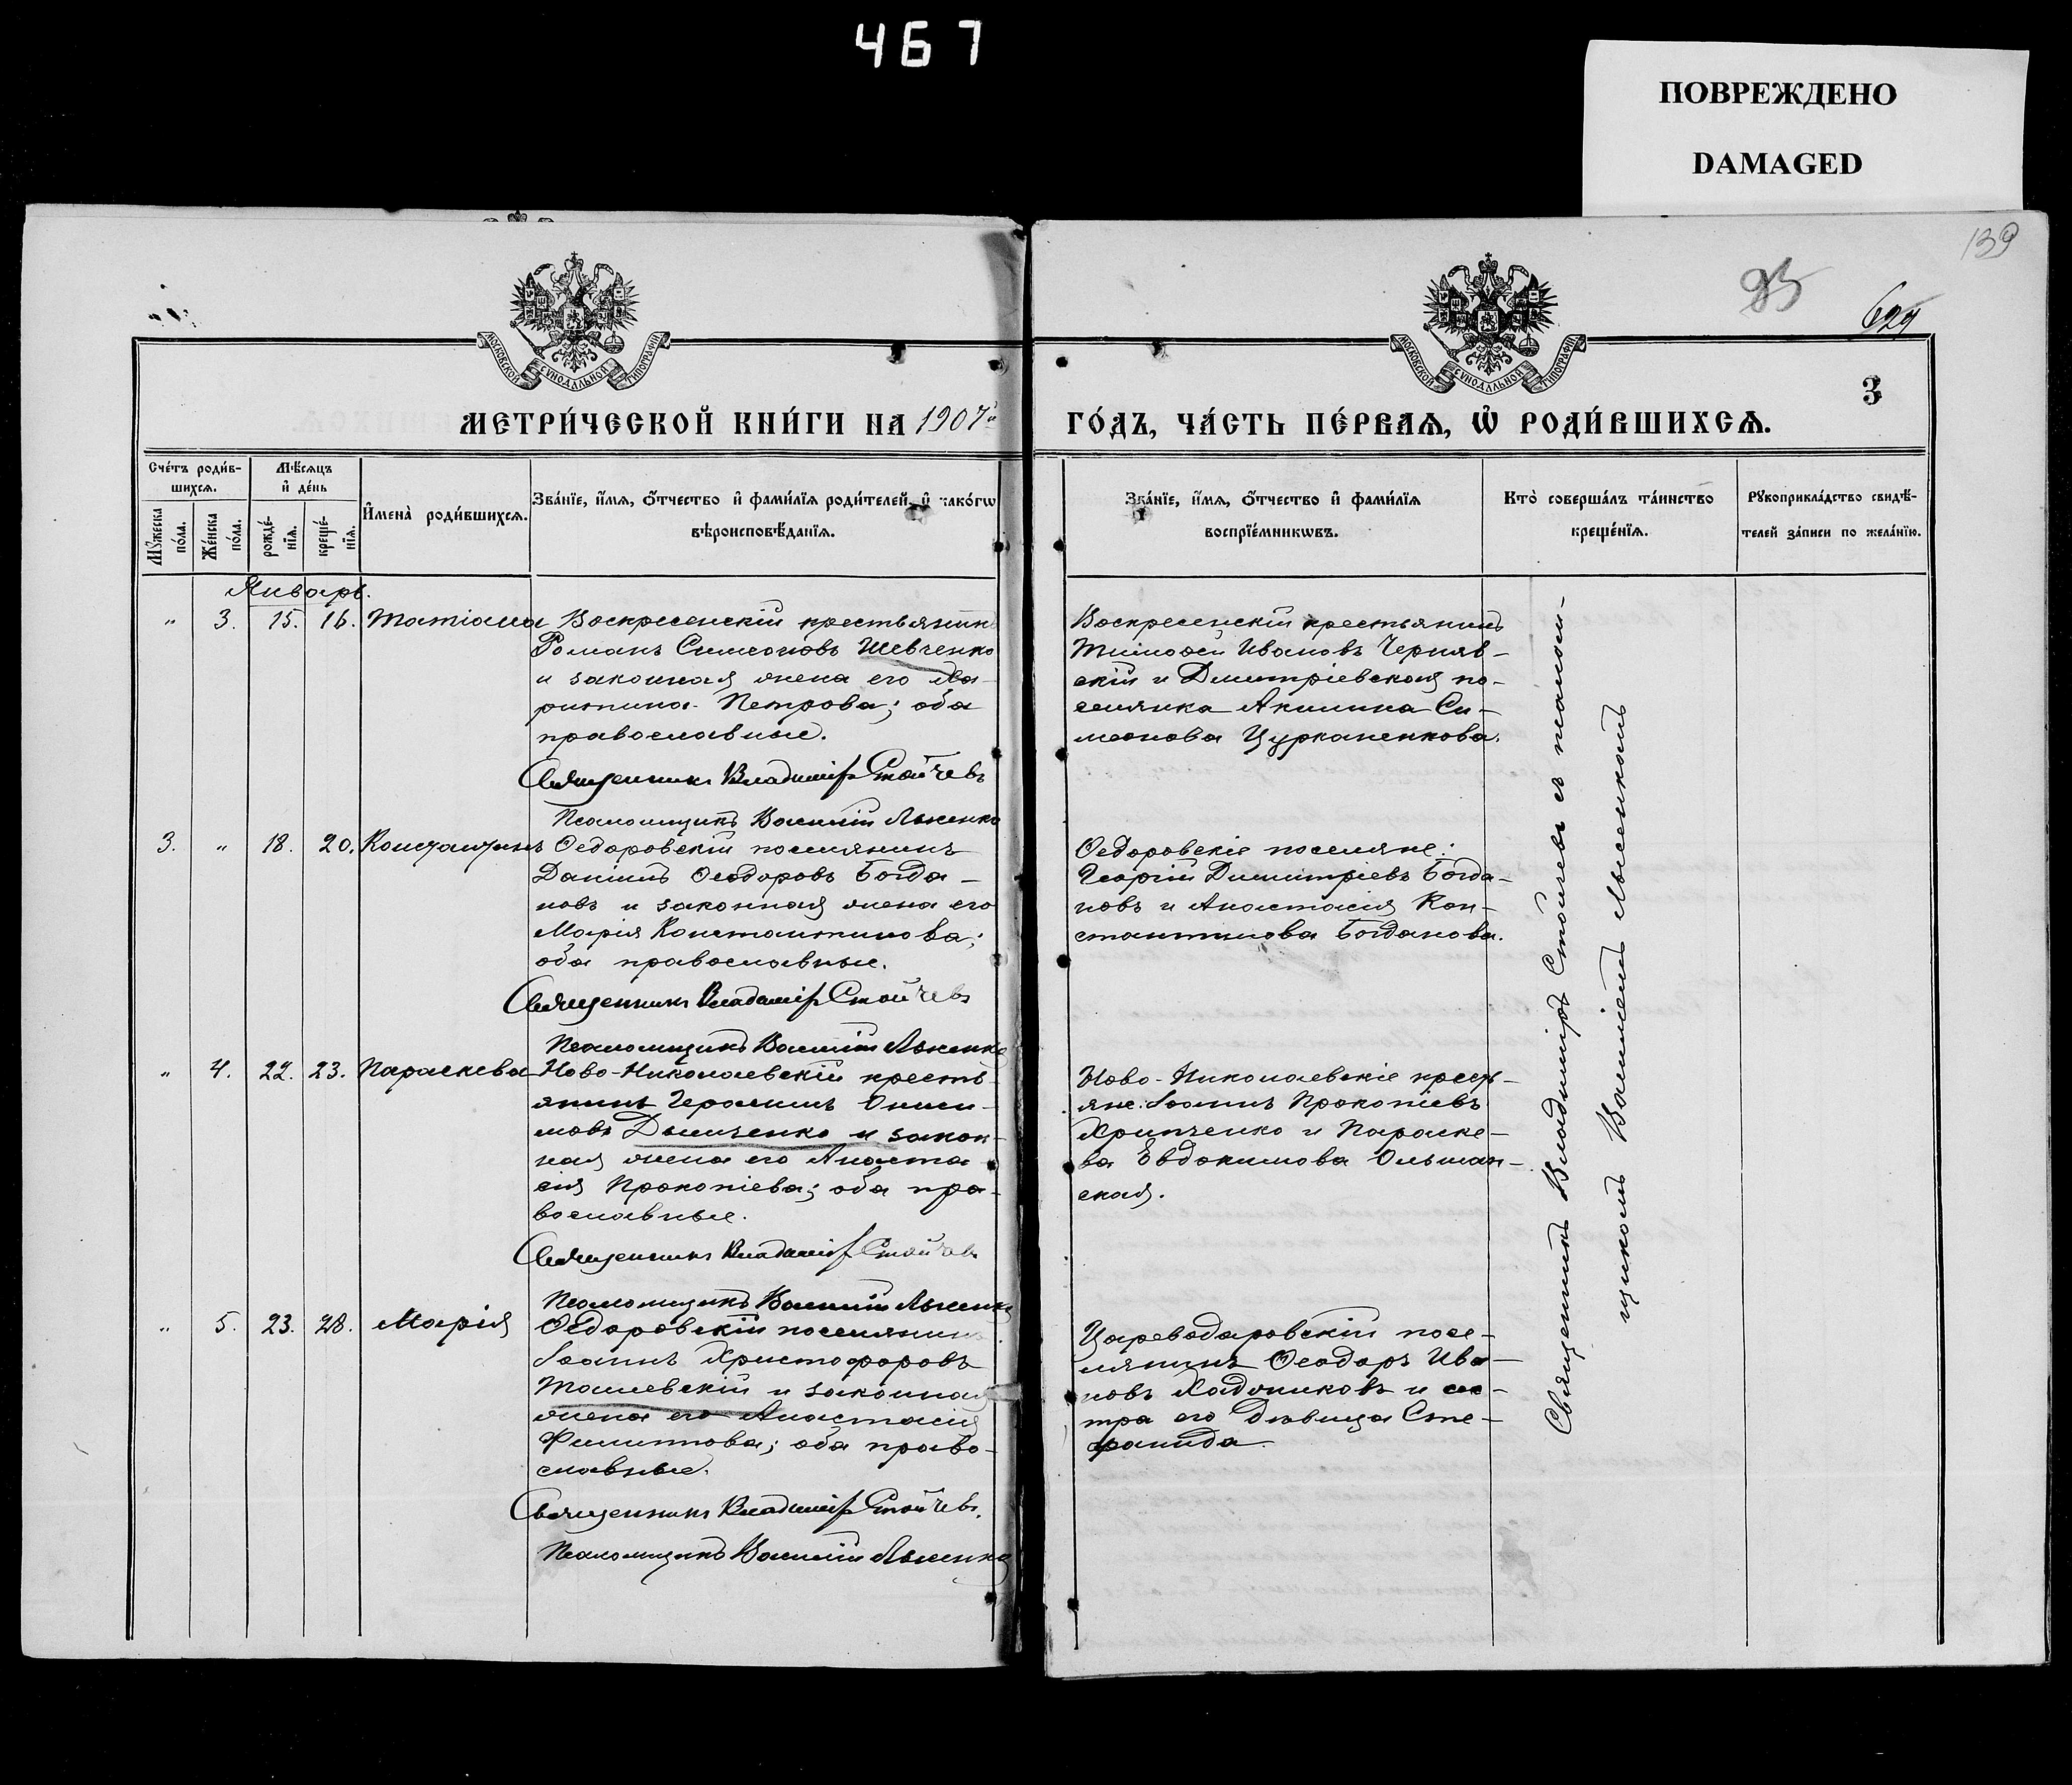 467
ПОВРЕЖДЕНО
DAMAGED
139
624
3
МОСКОВСКОЙ СѴНОДАЛЬНОЙ ТИПОГРАФІИ
МОСКОВСКОЙ СѴНОДАЛЬНОЙ ТИПОГРАФІИ
МЕТРИ́ЧЕСКОЙ КНИ́ГИ НА 1907й ГО́ДЪ, ЧА́СТЬ ПЕ́РВАѦ, Ѡ҆ РОДИ́ВШИХСѦ.
Сче́тъ роди́в-
шихсѧ.
Мꙋжеска по́ла.
Же́нска по́ла.
Мѣ́сѧцъ
и҆ де́нь
рожде́-
нїѧ.
креще́-
нїѧ.
И҆мена̀ роди́вшихсѧ.
Зва́нїе, и҆́мѧ, ѻ҆́тчество и҆ фами́лїѧ роди́телей, и҆ како́гѡ
вѣроисповѣ́данїѧ.
Зва́нїе, и҆́мѧ, ѻ҆́тчество и҆ фами́лїѧ
воспрїе́мникѡвъ.
Кто̀ соверша́лъ та́инство
креще́нїѧ.
Рꙋкоприкла́дство свидѣ́-
телей за́писи по жела́нїю.
Январь.
" 3. 15. 16. Татіана
Воскресенскій крестьянинъ
Романъ Симеоновъ Шевченко
и законная жена его Ха-
ритина Петрова; оба
православные.
Священникъ Владиміръ Стойчевъ
Псаломщикъ Василій Лысенко
Воскресенскій крестьянинъ
Тимоѳей Ивановъ Черняв-
скій и Дмитріевская по-
селянка Акилина Си-
меонова Цурканенкова.
3. " 18. 20. Константинъ
Ѳедоровскій поселянинъ
Даніилъ Ѳеодоровъ Богда-
новъ и законная жена его
Марія Константинова;
оба православные.
Священникъ Владиміръ Стойчевъ
Псаломщикъ Василій Лысенко
Ѳедоровскіе поселяне:
Георгій Димитріевъ Богда-
новъ и Анастасія Кон-
стантинова Богданова.
" 4. 22. 23. Параскева
Ново-Николаевскій кресть-
янинъ Герасимъ Ониси-
мовъ Дьяченко и закон-
ная жена его Анаста-
сія Прокопіева; оба пра-
вославные.
Священникъ Владиміръ Стойчевъ
Псаломщикъ Василій Лысенко
Ново-Николаевскіе кресть-
яне: Іоаннъ Прокопіевъ
Харченко и Параске-
ва Евдокимова Ольшан-
ская.
" 5. 23. 28. Марія
Ѳедоровскій поселянинъ
Іоаннъ Христофоровъ
Ташевскій и законная
жена его Анастасія
Филиппова; оба право-
славные.
Священникъ Владиміръ Стойчевъ.
Псаломщикъ Василій Лысенко
Цареводаровскій посе-
лянинъ Ѳеодоръ Ива-
новъ и сес-
тра его дѣвица Сте-
фанида.
Священникъ Владиміръ Стойчевъ съ псалом-
щикомъ Василіемъ Лысенкомъ